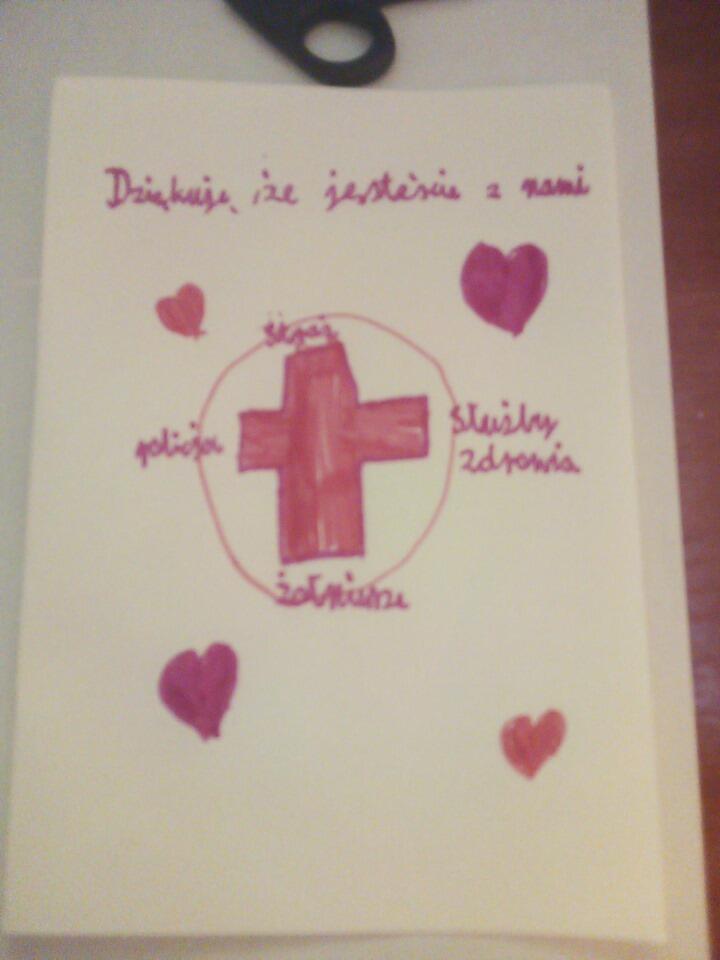 Dziękuję, że jesteście z nami
Straż
policja
Służby
zdrowia
żołnierze